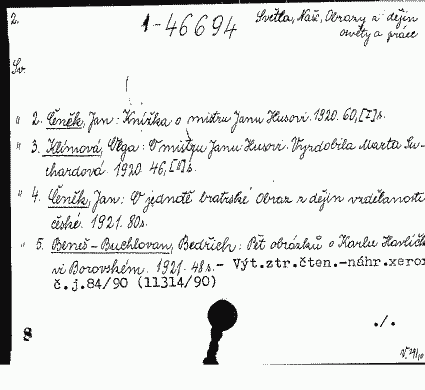 2.
1-46694
Světla, Naší, Obrazy z dějin
osvěty a práce
Sv.
" 2. Čeněk, Jan: Knížka o mistru Janu Husovi. 1920. 60,[I]s.
" 3. Klímová, Olga: O mistru Janu Husovi. Vyzdobila Marta Su-
chardová. 1920. 46,[I]s.
" 4. Čeněk, Jan: O jednotě bratrské. Obraz z dějin vzdělanosti
české. 1921. 80s.
" 5. Beneš-Buchlovan, Bedřich: Pět obrázků o Karlu Havlíčk
vi Borovském. 1921. 48s.- Výt.ztr.čten.-náhr.xerox
č.j.84/90 (11314/90)
./.
8